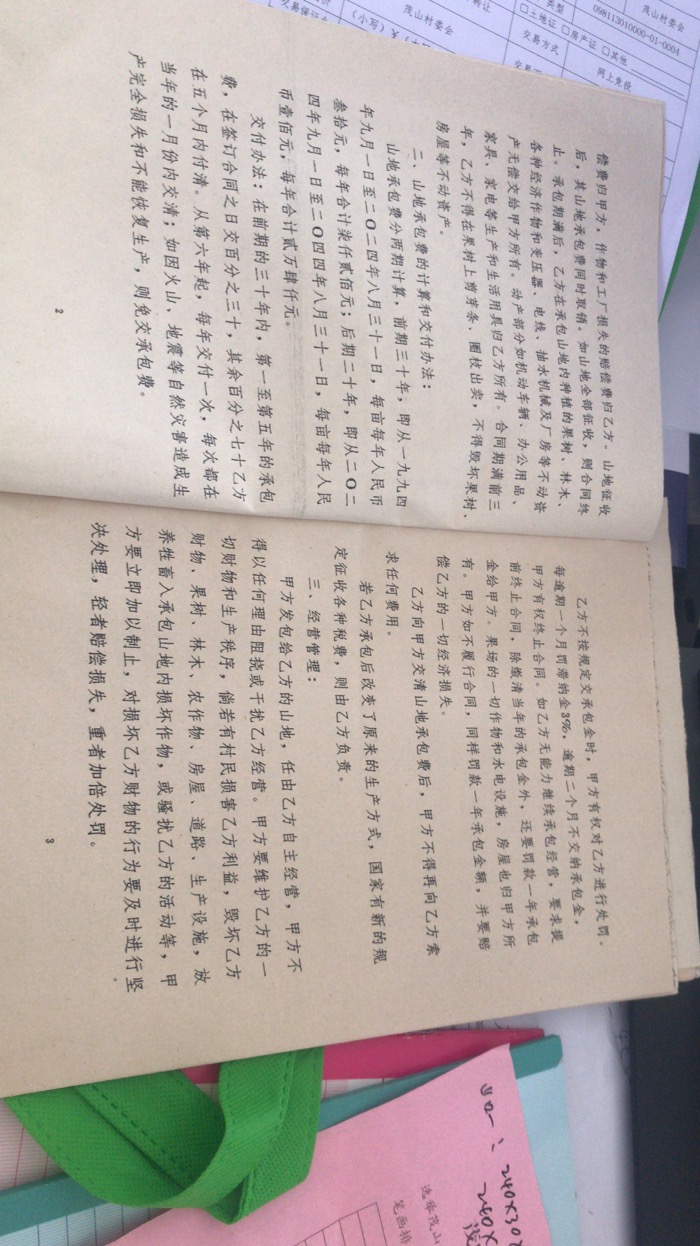 茂山村委会
类型
098113010000-01-0004
□土地证 □房产证 □其他
茂山村委会
交易方式
网上竞投
(小写) ¥
偿费归甲方，作物和工厂损失的赔偿费归乙方。山地征收
后，其山地承包费同时取销。如山地全部征收，则合同终
止。承包期满后，乙方在承包山地内种植的果树、林木、
各种经济作物和变压器、电线、抽水机械及厂房等不动资
产无偿交给甲方所有。动产部分如机动车辆、办公用品、
家具、家电等生产和生活用具归乙方所有。合同期满前三
年，乙方不得在果树上剪芽条、圈枝出卖，不得毁坏果树、
房屋等不动资产。
二、山地承包费的计算和交付办法：
山地承包费分两期计算，前期三十年，即从一九九四
年九月一日至二O二四年八月三十一日，每亩每年人民币
叁拾元，每年合计柒仟贰佰元；后期二十年，即从二O二
四年九月一日至二O四四年八月三十一日，每亩每年人民
币壹佰元，每年合计贰万肆仟元。
交付办法：在前期的三十年内，第一至第五年的承包
费，在签订合同之日交百分之三十，其余百分之七十乙方
在五个月内付清。从第六年起，每年交付一次，每次都在
当年的一月份内交清；如因火山、地震等自然灾害造成生
产完全损失和不能恢复生产，则免交承包费。
2
乙方不按规定交承包金时，甲方有权对乙方进行处罚。
每逾期一个月罚滞纳金3%，逾期三个月不交纳承包金，
甲方有权终止合同。如乙方无能力继续承包经营，要求提
前终止合同，除缴清当年的承包金外，还要罚款一年承包
金给甲方。果场的一切作物和水电设施，房屋也归甲方所
有。甲方如不履行合同，同样罚款一年承包金额，并要赔
偿乙方的一切经济损失。
乙方向甲方交清山地承包费后，甲方不得再向乙方索
求任何费用。
若乙方承包后改变了原来的生产方式，国家有新的规
定征收各种税费，则由乙方负责。
三、经营管理：
甲方发包给乙方的山地，任由乙方自主经营，甲方不
得以任何理由阻挠或干扰乙方经营。甲方要维护乙方的一
切财物和生产秩序，倘若有村民损害乙方利益，毁坏乙方
财物、果树、林木、农作物、房屋、道路、生产设施，放
养牲畜入承包山地内损坏作物，或骚扰乙方的活动等，甲
方要立即加以制止，对损坏乙方财物的行为要及时进行坚
决处理，轻者赔偿损失，重者加倍处罚。
3
240X30
选择茂山
笔画排